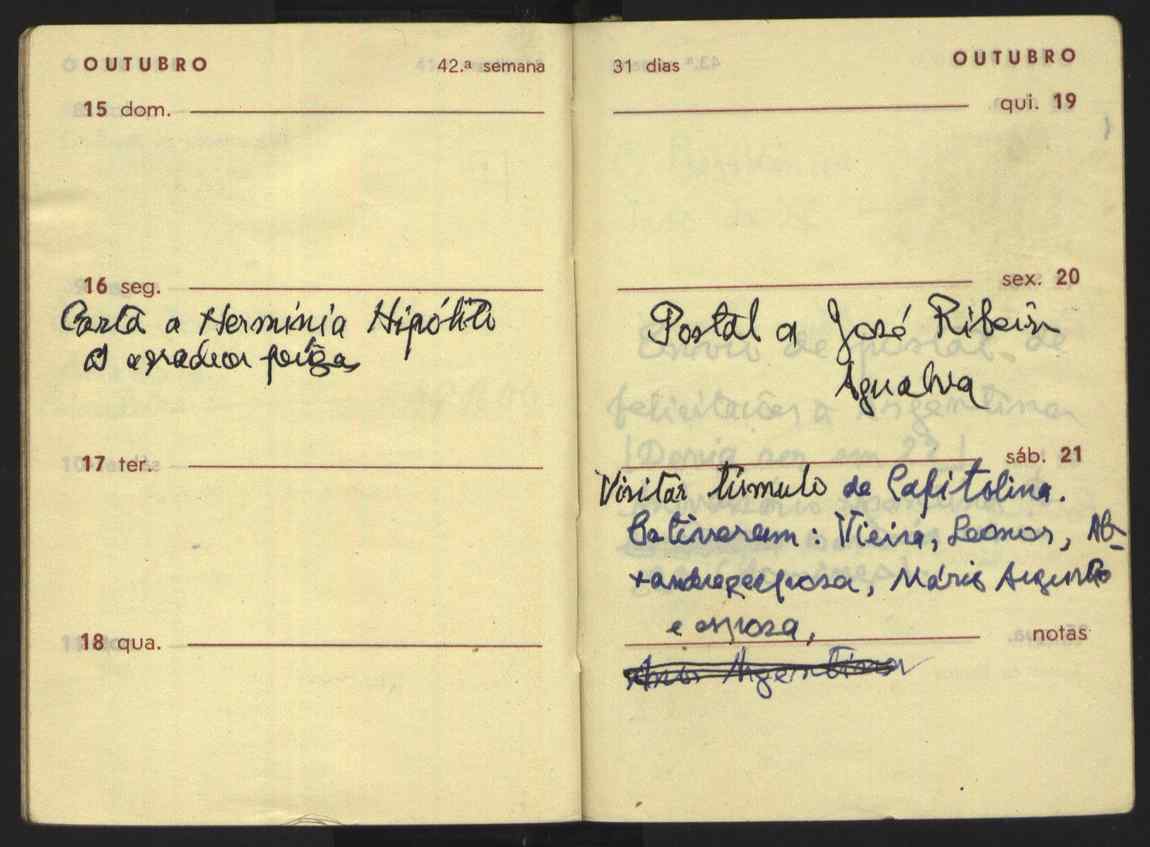 OUTUBRO 42.ª semana
15 dom.
16 seg.
Carta a Hermínia Hipólito
a agradecer
17 ter.
18 qua.
31 dias OUTUBRO
qui. 19
sex. 20
Postal a José Ribeiro
Agualva
sáb. 21
Visitar túmulo de Capitolina.
Estiveram: Vieira, Leonor, Ale-
xandre e esposa, Mário Augusto
e esposa,
notas
Argentina